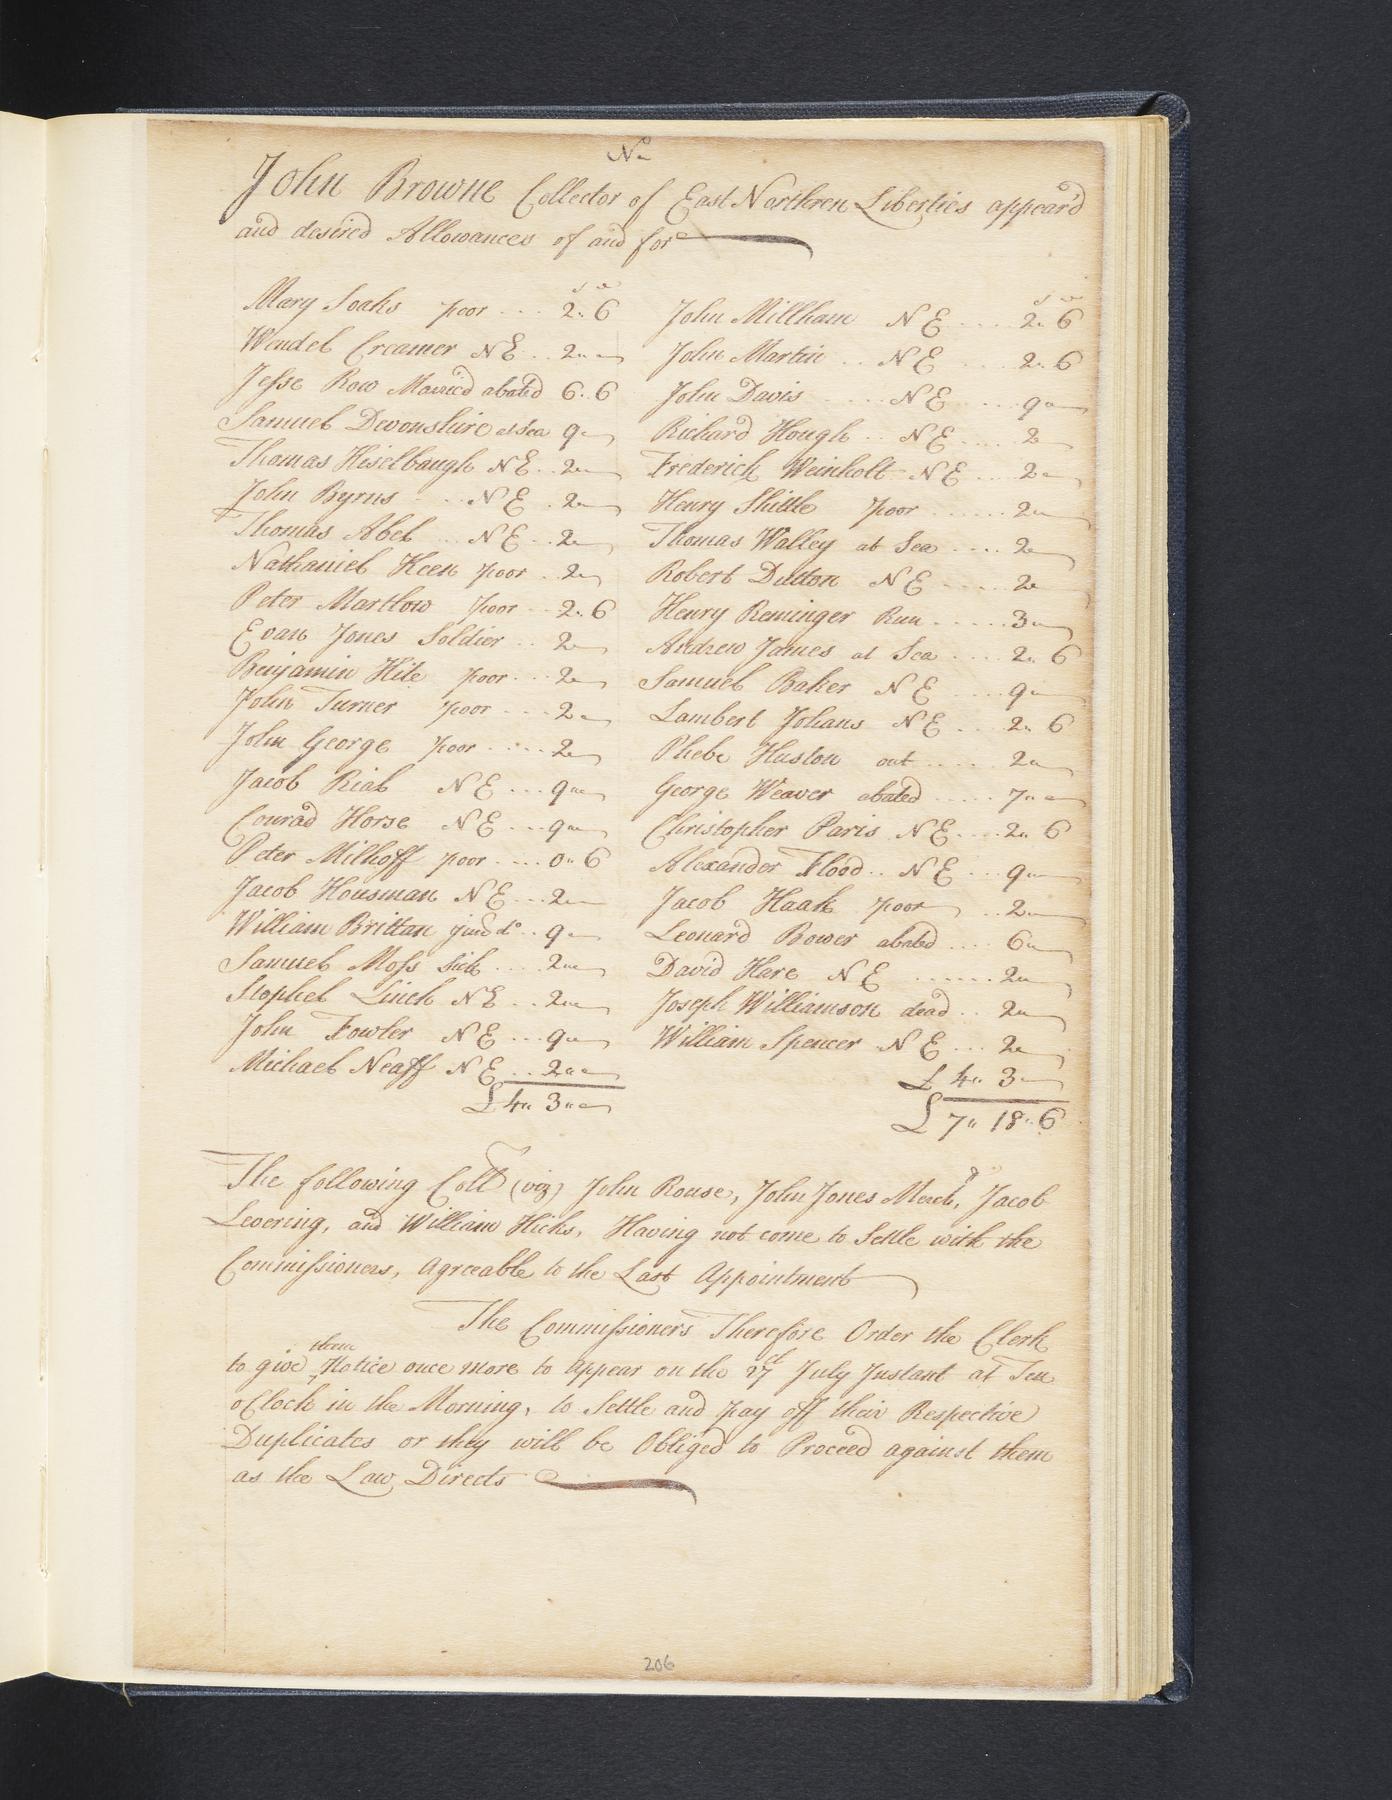 No
John Browne Collector of East Northren Liberties appear'd
and desired Allowances of and for
s d
Mary Soaks poor ... 2 " 6
Wendel Creamer NE .. 2 "
Jesse Row Married abated 6 " 6
Samuel Devonshire at Sea 9 "
Thomas Hiselbaugh NE .. 2 "
John Byrns ... NE . 2 "
Thomas Abel ... NE .. 2 "
Nathaniel Keen poor .. 2 "
Peter Martlow poor .. 2 " 6
Evan Jones Soldier .. 2 "
Benjamin Hite poor ... 2 "
John Turner poor ... 2 "
John George poor ..... 2 "
Jacob Rial NE ... 9 "
Conrad Horse NE ... 9 "
Peter Milhoff poor .... 0 " 6
Jacob Housman NE ... 2 "
William Brittan junr do .. 9 "
Samuel Moss Sick .... 2 "
Stophel Linch NE .. 2 "
John Fowler NE ... 9 "
Michael Neaff NE .. 2 "
£ 4 " 3 "
s d
John Millham NE .... 2 " 6
John Martin .. NE .... 2 " 6
John Davis .... NE .... 9 "
Richard Hough .. NE .... 2 "
Frederick Weinholt NE ... 2 "
Henry Shittle poor ...... 2 "
Thomas Walley at Sea .... 2 "
Robert Dutton NE ..... 2 "
Henry Reminger Run ..... 3 "
Andrew James at Sea .... 2 " 6
Samuel Baker NE .... 9 "
Lambert Johans NE ... 2 " 6
Phebe Huston out ..... 2 "
George Weaver abated ..... 7 "
Christopher Paris NE .... 2 " 6
Alexander Flood .. NE ... 9 "
Jacob Haak poor ... 2 "
Leonard Bower abated .... 6 "
David Hare NE ...... 2 "
Joseph Williamson dead .. 2 "
William Spencer NE ... 2 "
£ 4 " 3 "
£ 7 " 18 " 6
The following Coll (viz) John Rouse, John Jones Merch, Jacob
Levering, and William Hicks, Having not come to Settle with the
Commissioners, Agreeable to the Last Appointment
The Commissioners Therefore Order the Clerk
to give them Notice once more to Appear on the 27 July Instant at Ten
oClock in the Morning, to Settle and pay off their Respective
Duplicates or they will be Obliged to Proceed against them
as the Law Directs
206